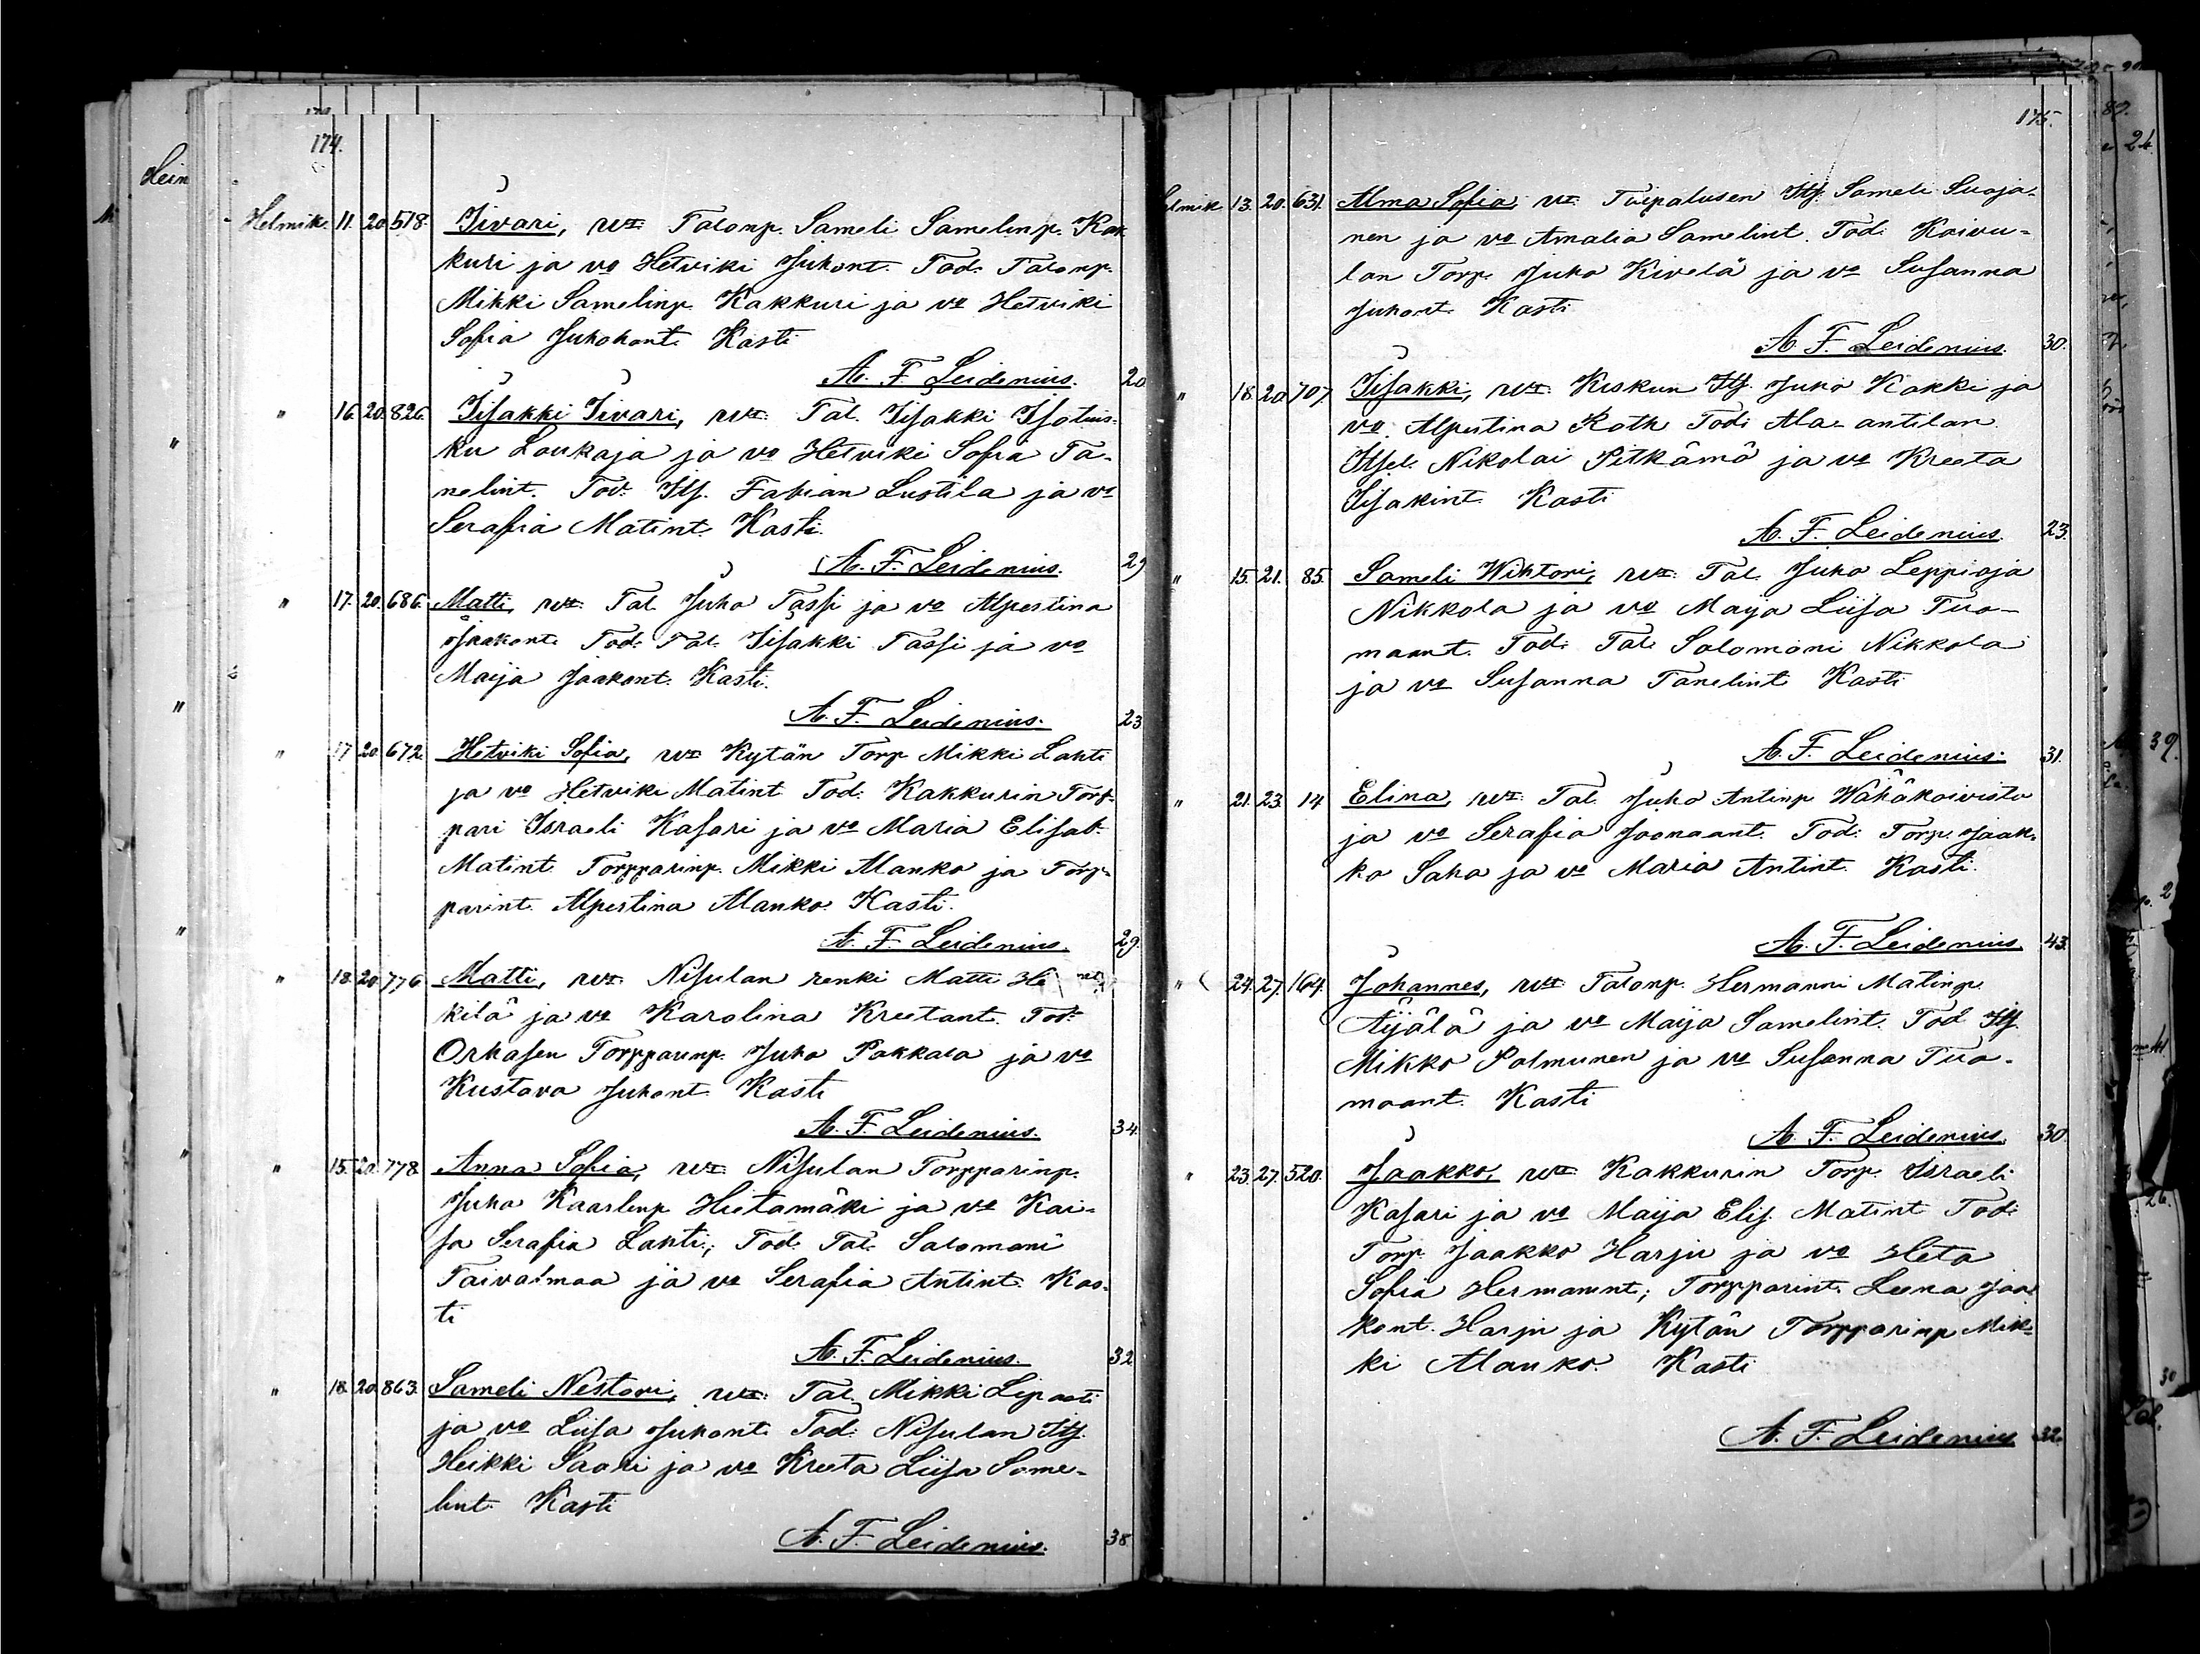 174.
Helmik. 11. 20. 518. Iivari, vt: Talonp. Sameli Samelinp. Kak
kuri ja vo Hetviki Juhont. Tod: Talonp.
Mikki Samelinp. Kakkuri ja vo Hetviki
Sofia Juhohont. Kasti
A. F. Leidenius. 20
" 16. 20. 826. Iisakki Iivari, vt: Tal. Iisakki Isoluis-
ku Laukaja ja vo Hetviki Sofia Ta-
nelint. Tod: Its. Fabian Lustila ja vo
Serafia Matint. Kasti.
A. F. Leidenius. 29
" 17. 20. 686. Matti, vt: Tal. Juho Tassi ja vo Alpestina
Jaakont. Tod: Tal. Iisakki Tassi ja vo
Maija Jaakont. Kasti.
A. F. Leidenius. 23
" 17 20 672. Hetviki Sofia, vt: Kytän Torp. Mikki Lahti
ja vo Hetviki Matint Tod: Kakkurin Torp-
pari Israeli Kasari ja vo Maria Elisab.
Matint. Torpparinp. Mikki Alanko ja Torp-
parint. Alpestina Alanko. Kasti.
A. F. Leidenius. 29.
" 18. 20. 776 Matti, vt: Nisulan renki Matti
kilä ja vo Karolina Kreetant. Tod:
Orhasen Torpparinp. Juho Pakkala ja vo
Kustava Juhont. Kasti
A. F. Leidenius. 34
" 15. 20. 778 Anna Sofia, vt: Nisulan Torpparinp.
Juho Kaarlinp Hietamäki ja vo Kai-
sa Serafia Lahti; Tod. Tal. Salomoni
Taivalmaa ja vo Serafia Antint. Kas-
ti
A. F. Leidenius. 32
" 18. 20. 863. Sameli Nestori, vt: Tal. Mikki Lipasti
ja vo Liisa Juhont. Tod: Nisulan Its.
Heikki Saari ja vo Kreeta Liisa Same-
lint. Kasti
A. F. Leidenius. 38
175.
elmik 13. 20. 631. Alma Sofia, vt: Toipalusen Its. Sameli Suoja-
nen ja vo Amalia Samelint. Tod: Koivu-
lan Torp. Juho Kivelä ja vo Susanna
Juhont. Kasti
A. F. Leidenius. 30.
" 18. 20. 707 Iisakki, vt: Keskun Its. Juho Kakki ja
vo. Alpestina Kath. Tod: Ala-antilan
Itsel. Nikolai Pitkämö ja vo Kreeta
Iisakint. Kasti
A. F. Leidenius. 23.
" 15. 21. 85. Sameli Wihtori, vt: Tal. Juho Leppioja
Nikkola ja vo Maija Liisa Tuo-
maant. Tod: Tal. Salomoni Nikkola
ja vo Susanna Tanelint Kasti
A. F. Leidenius. 31.
" 21. 23. 14 Elina, vt: Tal. Juho Antinp Wähäkoivisto
ja vo Serafia Joonaant. Tod: Torp. Jaak-
ko Saha ja vo Maria Antint. Kasti.
A. F. Leidenius. 43.
" 24. 27. 164. Johannes, vt: Talonp. Hermanni Matinp.
Äijälä ja vo Maija Samelint. Tod Its.
Mikko Palmunen ja vo Susanna Tuo-
maant. Kasti
A. F. Leidenius. 30
" 23. 27. 520. Jaakko, vt: Kakkurin Torp. Israeli
Kasari ja vo Maija Elis. Matint Tod:
Torp. Jaakko Harju ja vo Heta
Sofia Hermannint; Torpparint. Leena Jaa
kont. Harju ja Kytän Torpparinp Mik-
ki Alanko. Kasti
A. F. Leidenius 32.